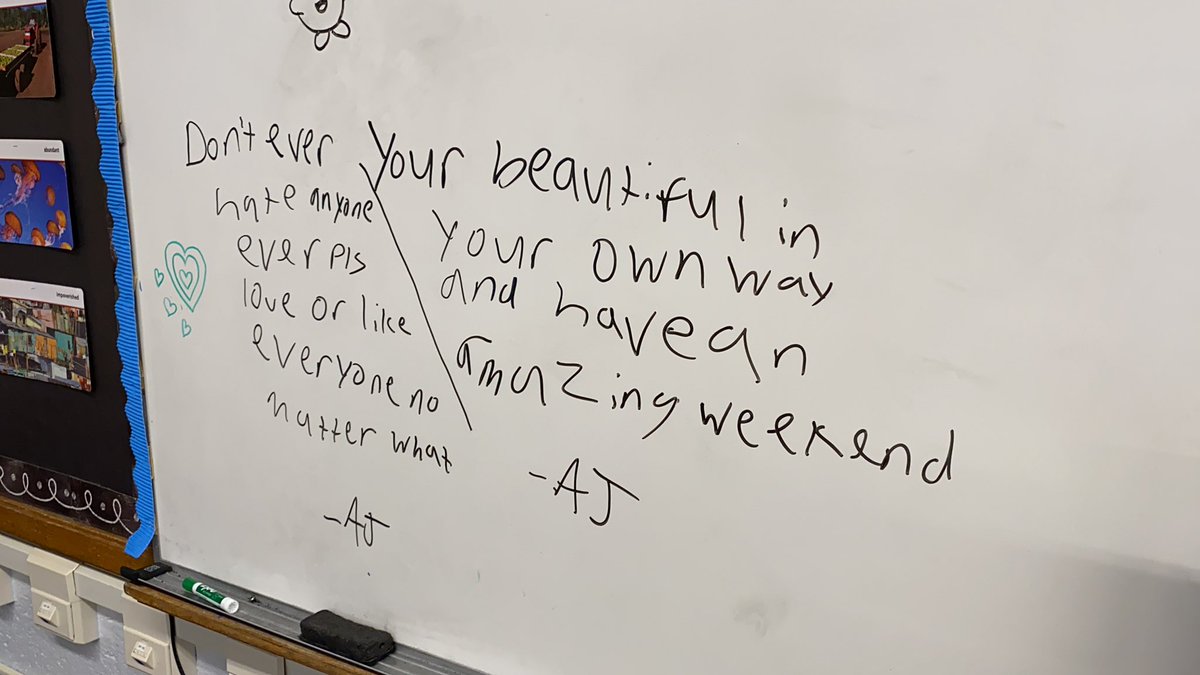 abundant
impoverished
Don't ever
hate anyone
ever pls
love or like
everyone no
matter what
-AJ
Your beautiful in
your own way
and have an
amazing weekend
-AJ